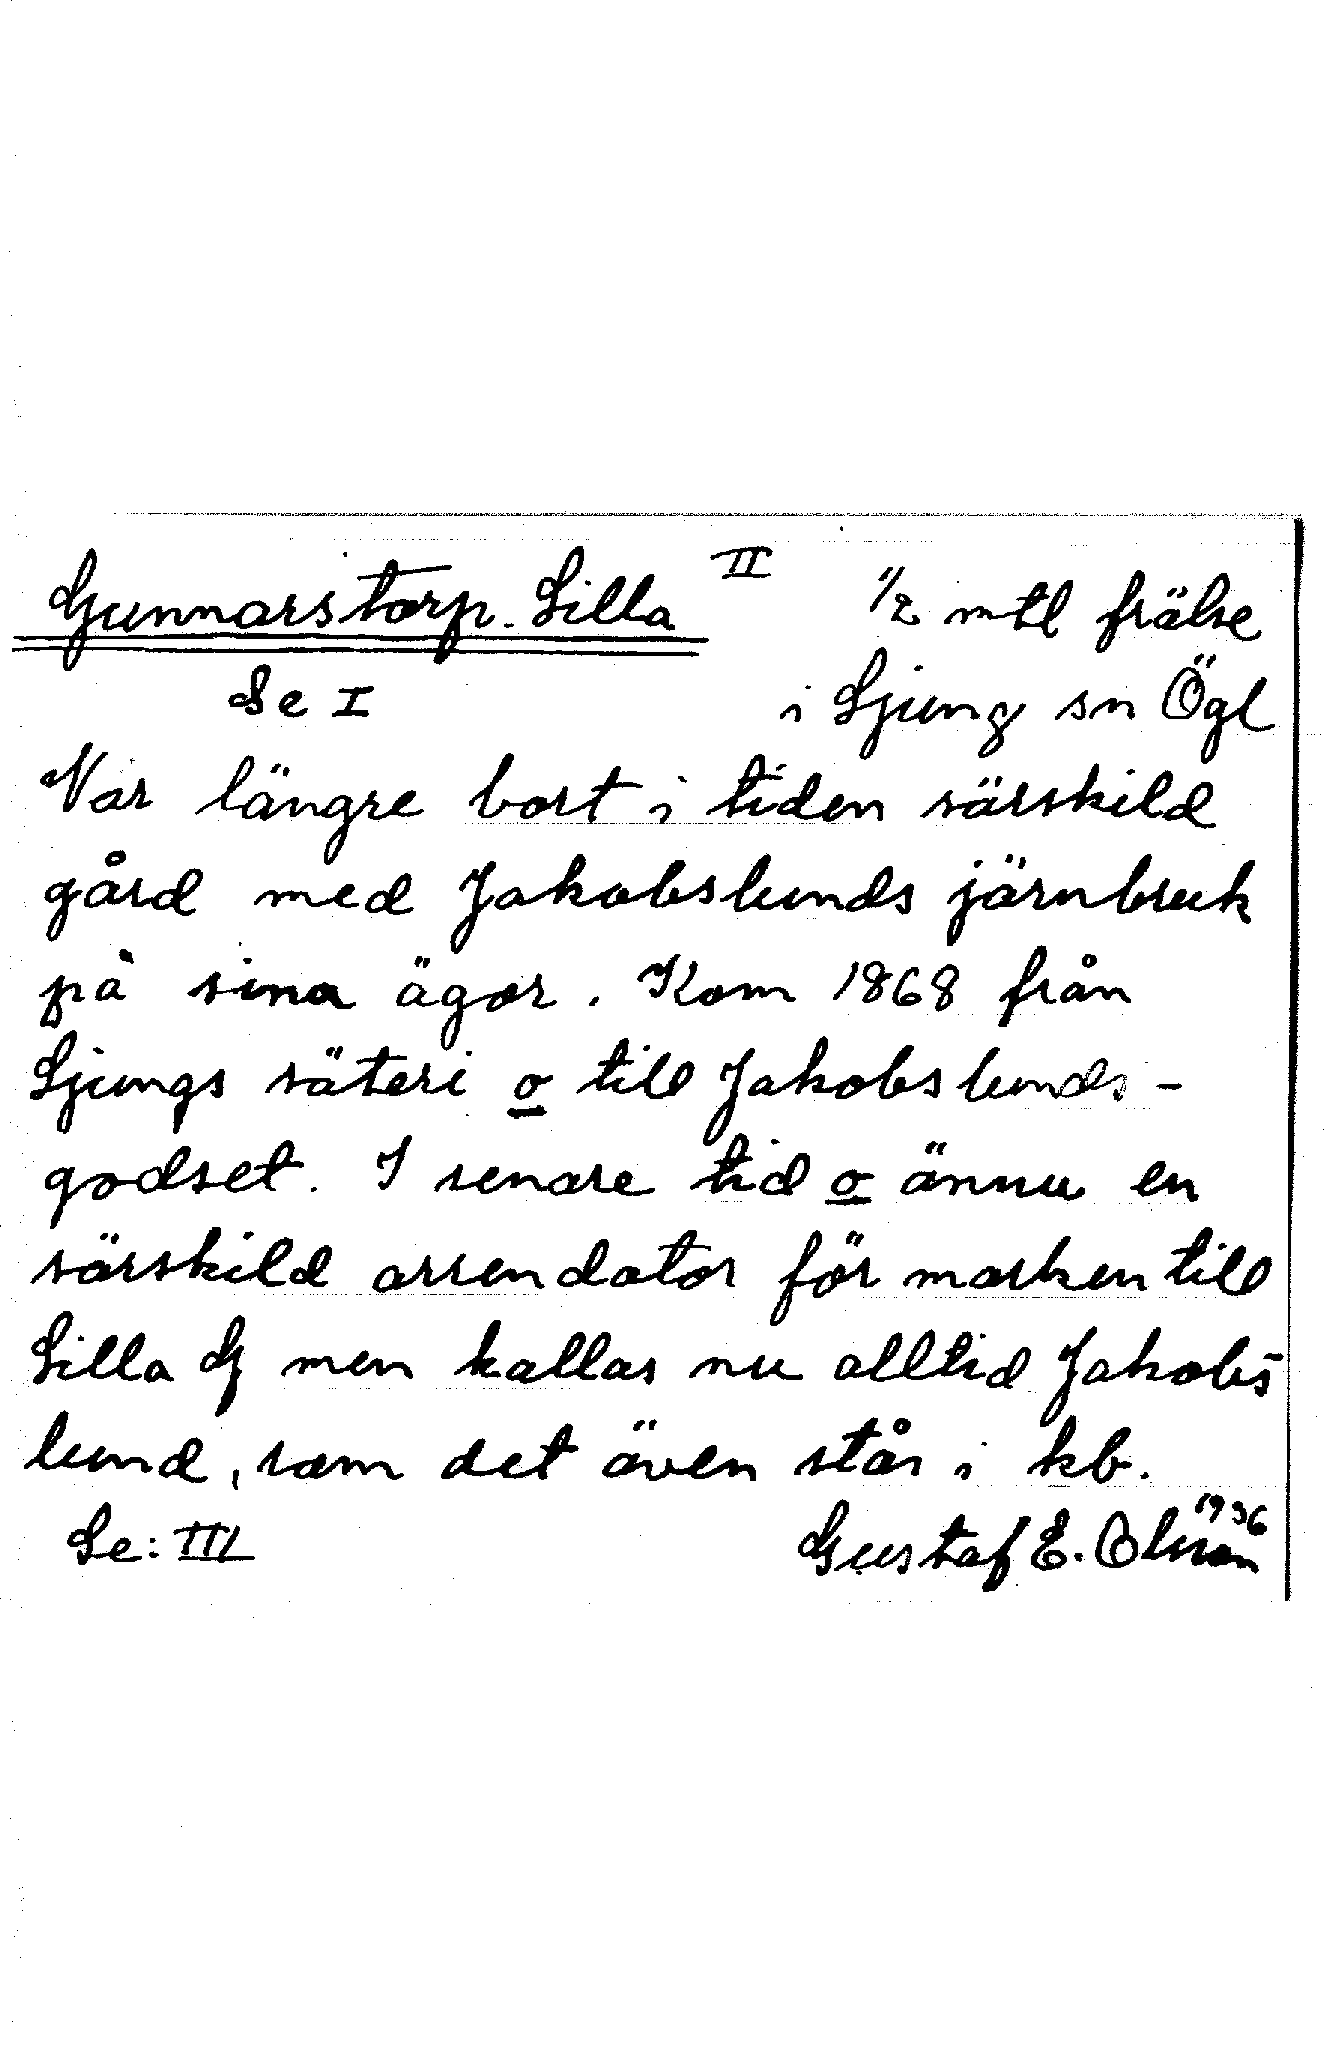 Gunnarstorp. Lilla II 1/2 mtl frälse
Se I i Ljung sn Ögl
Var längre bort i tiden särskild
gård med Jakobslunds järnbruk
på sina ägor. Kom 1868 från
Ljungs säteri o till Jakobslunds-
godset. I senare tid o ännu en
särskild arrendator för marken till
Lilla G men kallas nu alltid Jakobs-
lund, som det även står i kb.
Se: III Gustaf E. Olsson 1936